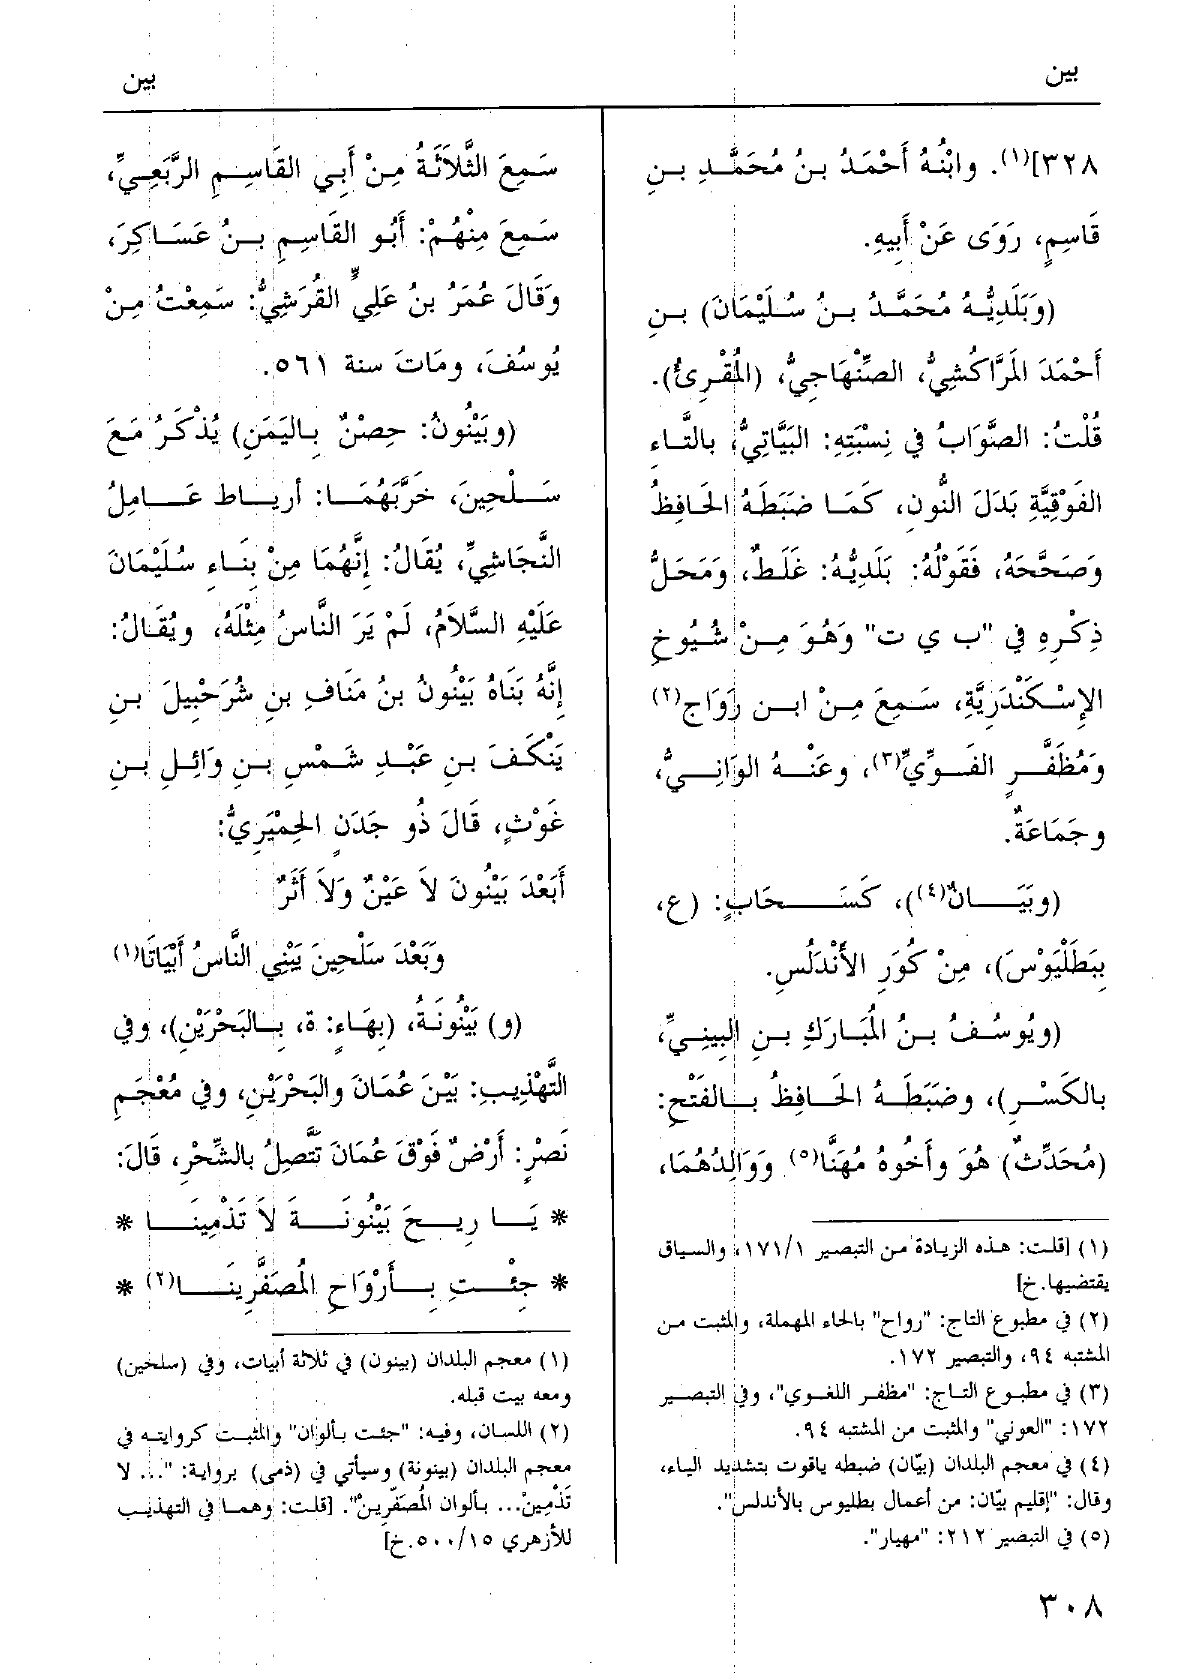 بين
بين
٣٢٨](١). وابْنُهُ أَحْمَدُ بنُ مُحَمَّدِ بنِ
قَاسِمٍ، رَوَى عَنْ أَبِيهِ.
(وَبَلَدِيُّهُ مُحَمَّدُ بنُ سُلَيْمَانَ) بنِ
أَحْمَدَ المَرَّاكُشِيُّ، الصِّنْهاجِيُّ، (المُقْرِئُ).
قُلْتُ: الصَّوَابُ فِي نِسْبَتِهِ: البَيَّاتِيُّ، بالتَّاءِ
الفَوْقِيَّةِ بَدَلَ النُّونِ، كَمَا ضَبَطَهُ الحَافِظُ
وَصَحَّحَهُ، فَقَوْلُهُ: بَلَدِيُّهُ: غَلَطٌ، وَمَحَلُّ
ذِكْرِهِ فِي "ب ي ت" وَهُوَ مِنْ شُيُوخِ
الإِسْكَنْدَرِيَّةِ، سَمِعَ مِنْ ابن رَوَاج(٢)
وَمُظَفَّرٍ الفَوِّيِّ(٣)، وعَنْهُ الوَانِيُّ،
وجَمَاعَةٌ.
(وبَيَانٌ(٤))، كَسَحَابٍ: (ع،
بِبَطَلْيَوْسَ)، مِنْ كُوَرِ الأَنْدَلُسِ.
(ويُوسُفُ بنُ المُبَارَكِ بنِ البِينِيِّ،
بالكَسْرِ)، وضَبَطَهُ الحَافِظُ بالفَتْحِ:
(مُحَدِّثٌ) هُوَ وأَخُوهُ مُهَنَّا(٥) وَوَالِدُهُمَا،
(١) [قلت: هذه الزيادة من التبصير ١٧١/١، والسياق
يقتضيها.خ]
(٢) في مطبوع التاج: "رواح" بالحاء المهملة، والمثبت من
المشتبه ٩٤، والتبصير ١٧٢.
(٣) في مطبوع التاج: "مظفر اللغوي"، وفي التبصير
١٧٢: "العوني" والمثبت من المشتبه ٩٤.
(٤) في معجم البلدان (بيّان) ضبطه ياقوت بتشديد الياء،
وقال: "إقليم بيّان: من أعمال بطليوس بالأندلس".
(٥) في التبصير ٢١٢: "مهيار".
سَمِعَ الثَّلَاثَةُ مِنْ أَبِي القَاسِمِ الرَّبَعِيِّ،
سَمِعَ مِنْهُمْ: أَبُو القَاسِمِ بنُ عَسَاكِرَ،
وَقَالَ عُمَرُ بنُ عَلِيٍّ القُرَشِيُّ: سَمِعْتُ مِنْ
يُوسُفَ، ومَاتَ سنة ٥٦١.
(وبَيْنُونُ: حِصْنٌ بِاليَمَنِ) يُذْكَرُ مَعَ
سَلْحِينَ، خَرَّبَهُمَا: أرياط عَامِلُ
النَّجاشِيِّ، يُقَالُ: إنَّهُمَا مِنْ بِنَاءِ سُلَيْمَانَ
عَلَيْهِ السَّلاَمُ، لَمْ يَرَ النَّاسُ مِثْلَهُ، ويُقَالُ:
إِنَّهُ بَنَاهُ بَيْنُونُ بنُ مَنَافِ بنِ شُرَحْبِيلَ بنِ
يَنْكَفَ بنِ عَبْدِ شَمْسِ بنِ وَائِلِ بنِ
غَوْثٍ، قَالَ ذُو جَدَنٍ الحِمْيَرِيُّ:
أَبَعْدَ بَيْنُونَ لاَ عَيْنٌ وَلاَ أَثَرٌ
وَبَعْدَ سَلْحِينَ يَبْنِي النَّاسُ أَبْيَاتَا(١)
(و) بَيْنُونَةُ، (بِهَاءٍ: ة، بِالبَحْرَيْنِ)، وفي
التَّهْذِيبِ: بَيْنَ عُمَانَ والبَحْرَيْنِ، وفي مُعْجَمِ
نَصْرٍ: أَرْضٌ فَوْقَ عُمَانَ تَتَّصِلُ بالشِّحْرِ، قَالَ:
* يَا رِيحَ بَيْنُونَةَ لاَ تَذْمِينَا *
* جِئْتِ بِأَرْوَاحِ المُصَفَّرِينَا(٢) *
(١) معجم البلدان (بينون) في ثلاثة أبيات، وفي (سلحين)
ومعه بيت قبله.
(٢) اللسان، وفيه: "جئت بألوان" والمثبت كروايته في
معجم البلدان (بينونة) وسيأتي في (ذمى) برواية: "... لا
تَذْمِينَ... بألوان المُصَفَّرِينْ". [قلت: وهما في التهذيب
للأزهري ٥٠٠/١٥.خ]
٣٠٨